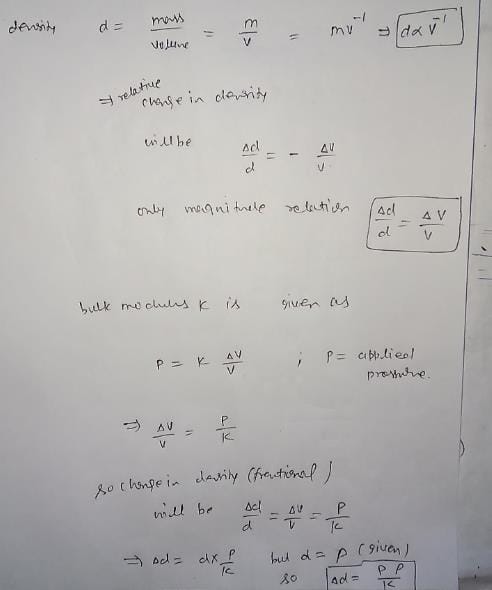 density d = mass/volume = m/V = mV⁻¹ ⇒ d ∝ V⁻¹
⇒ relative change in density
will be Δd/d = - ΔV/V
only magnitude relation Δd/d = ΔV/V
bulk modulus K is given as
P = K ΔV/V ; P = applied pressure.
⇒ ΔV/V = P/K
so change in density (fractional)
will be Δd/d = ΔV/V = P/K
⇒ Δd = d× P/K but d = ρ (given)
so Δd = ρ P/K